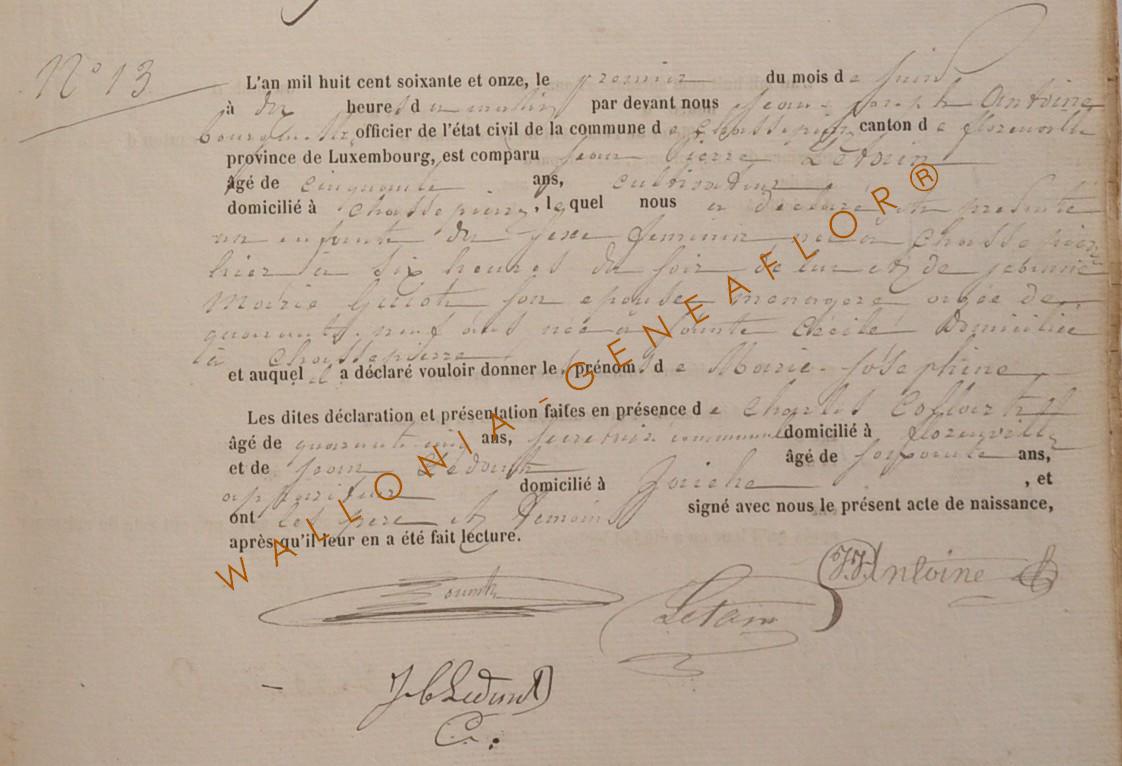 N° 13
L'an mil huit cent soixante et onze, le premier du mois de Juin
à dix heures du matin par devant nous Jean-Joseph Antoine
bourgmestre, officier de l'état civil de la commune de Chassepierre canton de florenville
province de Luxembourg, est comparu Jean Pierre
âgé de cinquante ans, cultivateur
domicilié à Chassepierre, lequel nous a déclaré et présenté
un enfant du sexe feminin né à Chassepierre
hier à six heures du soir de lui et de
Marie son epouse menagere agée de
quarante-neuf ans née à Sainte Cécile domiciliée
à Chassepierre
et auquel il a déclaré vouloir donner les prénoms de Marie-Joséphine
Les dites déclaration et présentation faites en présence de Charles
âgé de quarante cinq ans, secretaire communal domicilié à florenville
et de âgé de soixante ans,
domicilié à , et
ont les pere et temoins signé avec nous le présent acte de naissance,
après qu'il leur en a été fait lecture.
J.J. Antoine
WALLONIA-GENEAFLOR®